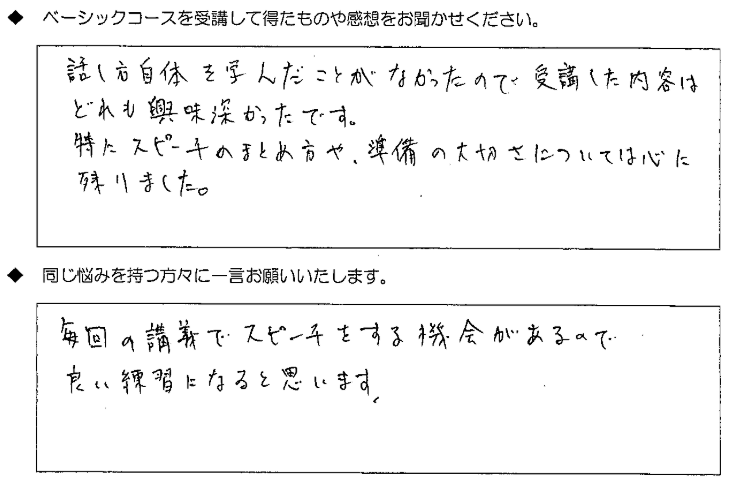 ◆ ベーシックコースを受講して得たものや感想をお聞かせください。
話し方自体を学んだことがなかったので受講した内容は
どれも興味深かったです。
特にスピーチのまとめ方や、準備の大切さについては心に
残りました。
◆ 同じ悩みを持つ方々に一言お願いいたします。
毎回の講義でスピーチをする機会があるので
良い練習になると思います。